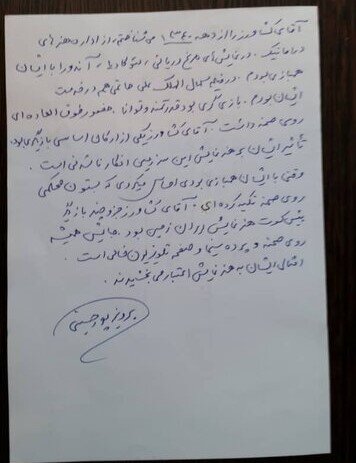 آقای کشاورز را از دهه ۱۳۴۰ می‌شناختم، از اداره هنرهای
دراماتیک. در نمایش‌های مرغ دریایی، ... آندورا با ایشان
همبازی بودم. در فیلم کمال الملک علی حاتمی هم در خدمت
ایشان بودم. بازیگری بود قدرتمند و توانا. حضور فوق العاده‌ای
روی صحنه داشت. آقای کشاورز یکی از ارکان اساسی بازیگری بود.
تأثیر ایشان بر هنر نمایش این سرزمین انکار ناشدنی است.
وقتی با ایشان همبازی بودی احساس میکردی که به ستون محکمی
روی صحنه تکیه کرده‌ای. آقای کشاورز جزو چند بازیگر
پیش‌کسوت هنر نمایش ایران زمین بود. جایش همیشه
روی صحنه و پرده سینما و صفحه تلویزیون خالی است.
امثال ایشان به هنر نمایش اعتبار می‌بخشیدند.
پرویز پورحسینی